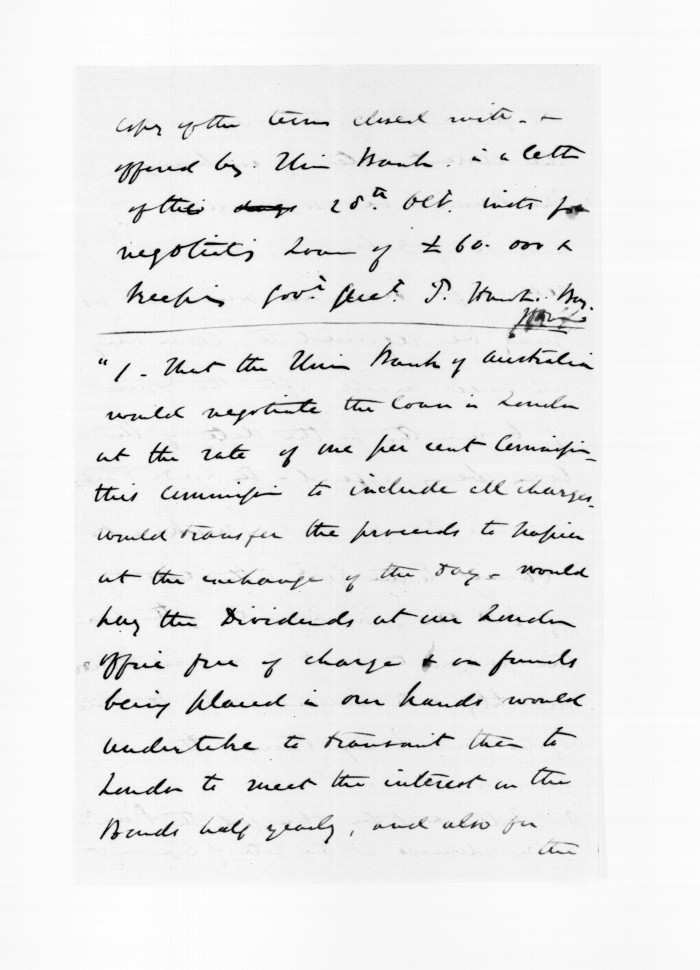 Copy of the terms closed with - &
offered by Union Bank in a letter
of the 28th Oct. inst for
negotiating Loan of £60.000 &
keeping Govt. Acct. Bank. Bay.
"1. That the Union Bank of Australia
would negotiate the loan in London
at the rate of one per cent Commission
this Commission to include all charges.
would transfer the proceeds to Napier
at the exchange of the day - would
pay the Dividends at our London
office free of charge & on funds
being placed in our hands would
undertake to transmit them to
London to meet the interest on the
Bonds half yearly, and also for
the